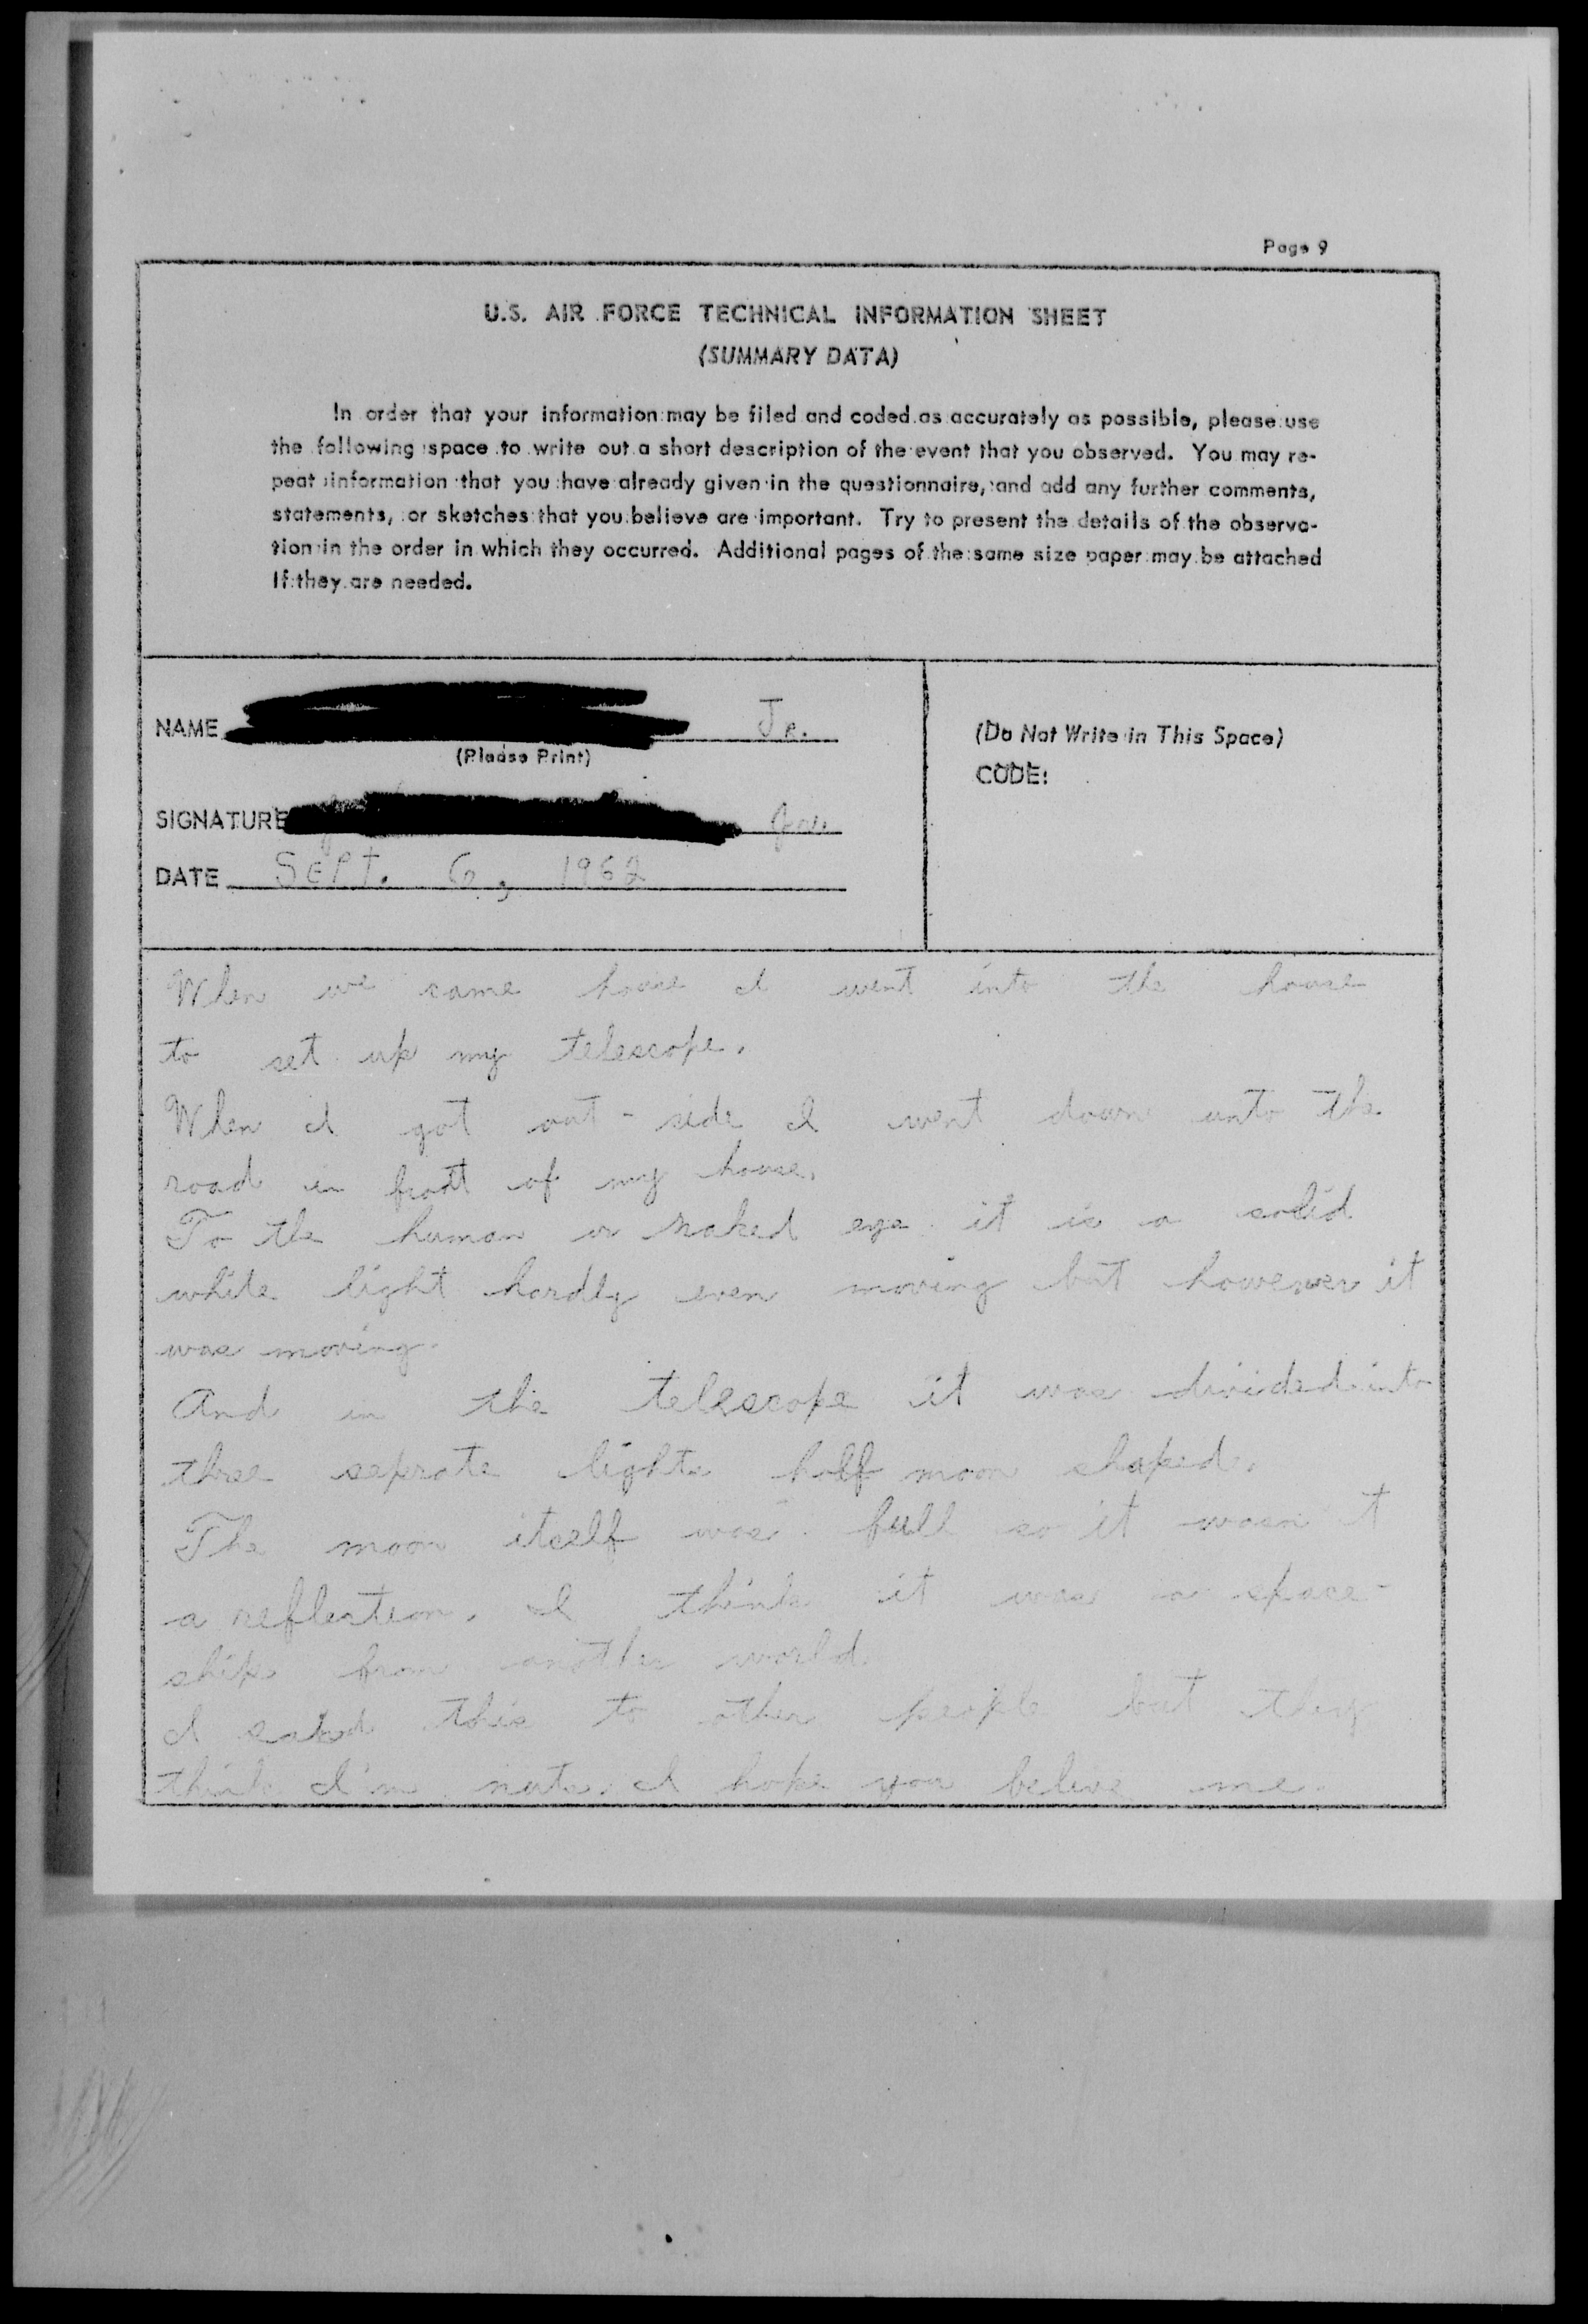 Page 9
U.S. AIR FORCE TECHNICAL INFORMATION SHEET
(SUMMARY DATA)
In order that your information may be filed and coded as accurately as possible, please use
the following space to write out a short description of the event that you observed. You may re-
peat information that you have already given in the questionnaire, and add any further comments,
statements, or sketches that you believe are important. Try to present the details of the observa-
tion in the order in which they occurred. Additional pages of the same size paper may be attached
if they are needed.
NAME Jr.
(Please Print)
SIGNATURE
DATE SEPT. 6, 1962
(Do Not Write in This Space)
CODE:
When we came house I went into the house
to set up my telescope.
When I got out-side I went down unto the
road in front of my house.
To the human or naked eye it is a solid
white light hardly even moving but however it
was moving.
And in the telescope it was divided into
three seprate lights half moon shaped.
The moon itself was full so it wasn't
a reflection. I think it was a space-
ship from another world.
I said this to other people but they
think I'm nuts. I hope you belive me.